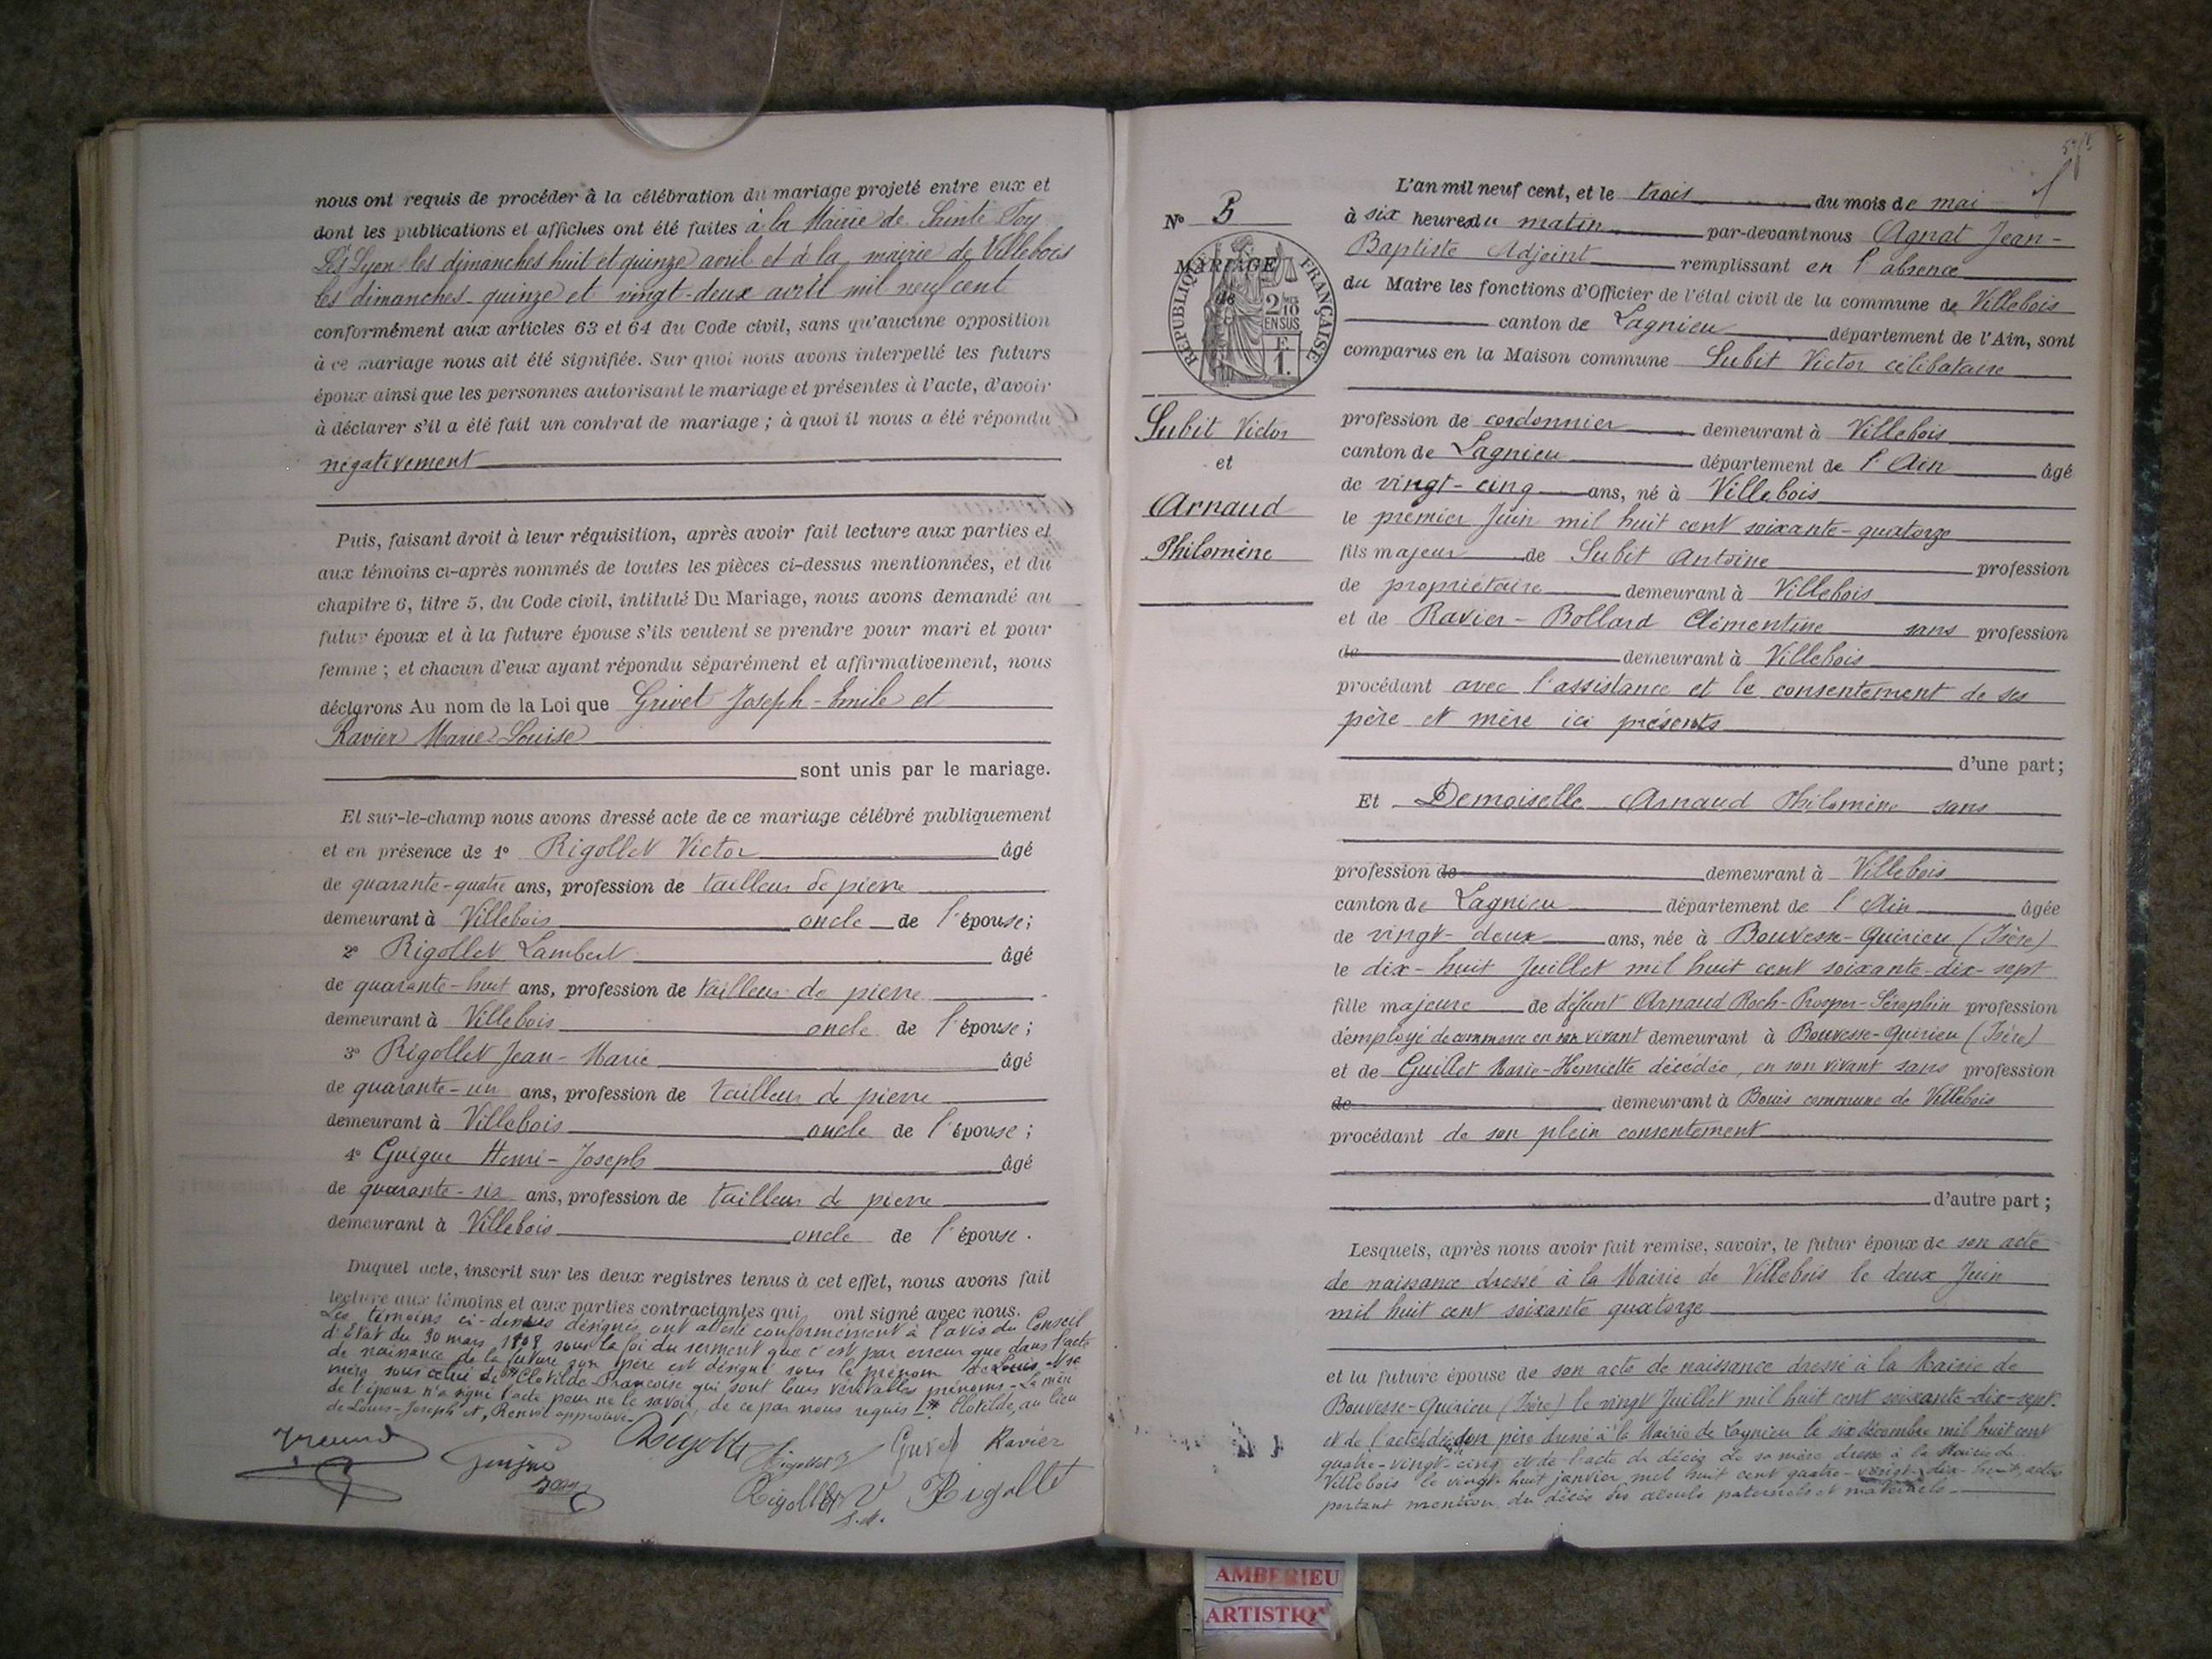 nous ont requis de procéder à la célébration du mariage projeté entre eux et
dont les publications et affiches ont été faites à la Mairie de Sainte Foy
Lès Lyon les dimanches huit et quinze avril et à la mairie de Villebois
les dimanches quinze et vingt-deux avril mil neuf cent
conformément aux articles 63 et 64 du Code civil, sans qu'aucune opposition
à ce mariage nous ait été signifiée. Sur quoi nous avons interpellé les futurs
époux ainsi que les personnes autorisant le mariage et présentes à l'acte, d'avoir
à déclarer s'il a été fait un contrat de mariage ; à quoi il nous a été répondu
négativement
Puis, faisant droit à leur réquisition, après avoir fait lecture aux parties et
aux témoins ci-après nommés de toutes les pièces ci-dessus mentionnées, et du
chapitre 6, titre 5, du Code civil, intitulé Du Mariage, nous avons demandé au
futur époux et à la future épouse s'ils veulent se prendre pour mari et pour
femme ; et chacun d'eux ayant répondu séparément et affirmativement, nous
déclarons Au nom de la Loi que Grivet Joseph-Emile et
Ravier Marie Louise
sont unis par le mariage.
Et sur-le-champ nous avons dressé acte de ce mariage célébré publiquement
et en présence de 1° Rigollet Victor âgé
de quarante-quatre ans, profession de tailleur de pierre
demeurant à Villebois oncle de l'épouse ;
2° Rigollet Lambert âgé
de quarante-huit ans, profession de tailleur de pierre
demeurant à Villebois oncle de l'épouse ;
3° Rigollet Jean-Marie âgé
de quarante-un ans, profession de tailleur de pierre
demeurant à Villebois oncle de l'épouse ;
4° Guigue Henri-Joseph âgé
de quarante-six ans, profession de tailleur de pierre
demeurant à Villebois oncle de l'épouse.
Duquel acte, inscrit sur les deux registres tenus à cet effet, nous avons fait
lecture aux témoins et aux parties contractantes qui ont signé avec nous.
Les témoins ci-dessus désignés ont attesté conformément à l'avis du Conseil
d'Etat du 30 mars 1808 sous la foi du serment que c'est par erreur que dans l'acte
de naissance de la future son père est désigné sous le prénom de Louis et sa
mère sous celui de Clotilde Françoise qui sont leurs véritables prénoms - La mère
de l'époux n'a signé l'acte pour ne le savoir, de ce par nous requis Clotilde, au lieu
de Louis-Joseph et, Renvoi approuvé
Rigollet Rigollet Grivet Ravier
Guigue
Rigollet V Rigollet
J.M.
N° 5
MARIAGE
de
RÉPUBLIQUE FRANÇAISE
2/10
EN SUS
1 F.
Subit Victor
et
Arnaud
Philomène
L'an mil neuf cent, et le trois du mois de mai
à six heures du matin par-devant nous Agnat Jean-
Baptiste Adjoint remplissant en l'absence
du Maire les fonctions d'Officier de l'état civil de la commune de Villebois
canton de Lagnieu département de l'Ain, sont
comparus en la Maison commune Subit Victor célibataire
profession de cordonnier demeurant à Villebois
canton de Lagnieu département de l'Ain âgé
de vingt-cinq ans, né à Villebois
le premier Juin mil huit cent soixante-quatorze
fils majeur de Subit Antoine profession
de propriétaire demeurant à Villebois
et de Ravier-Bollard Clémentine sans profession
de demeurant à Villebois
procédant avec l'assistance et le consentement de ses
père et mère ici présents
d'une part ;
Et Demoiselle Arnaud Philomène sans
profession de demeurant à Villebois
canton de Lagnieu département de l'Ain âgée
de vingt-deux ans, née à Bouvesse-Quirieu (Isère)
le dix-huit Juillet mil huit cent soixante-dix-sept
fille majeure de défunt Arnaud Roch-Prosper-Séraphin profession
d'employé de commerce en son vivant demeurant à Bouvesse-Quirieu (Isère)
et de Guillet Marie-Henriette décédée, en son vivant sans profession
de demeurant à Bouis commune de Villebois
procédant de son plein consentement
d'autre part ;
Lesquels, après nous avoir fait remise, savoir, le futur époux de son acte
de naissance dressé à la Mairie de Villebois le deux Juin
mil huit cent soixante quatorze
et la future épouse de son acte de naissance dressé à la Mairie de
Bouvesse-Quirieu (Isère) le vingt Juillet mil huit cent soixante-dix-sept.
et de l'acte de décès de son père dressé à la Mairie de Lagnieu le six décembre mil huit cent
quatre-vingt-cinq et de l'acte de décès de sa mère dressé à la Mairie de
Villebois le vingt-huit janvier mil huit cent quatre-vingt-dix-huit, actes
portant mention du décès des aïeuls paternels et maternels
AMBERIEU
ARTISTIQ